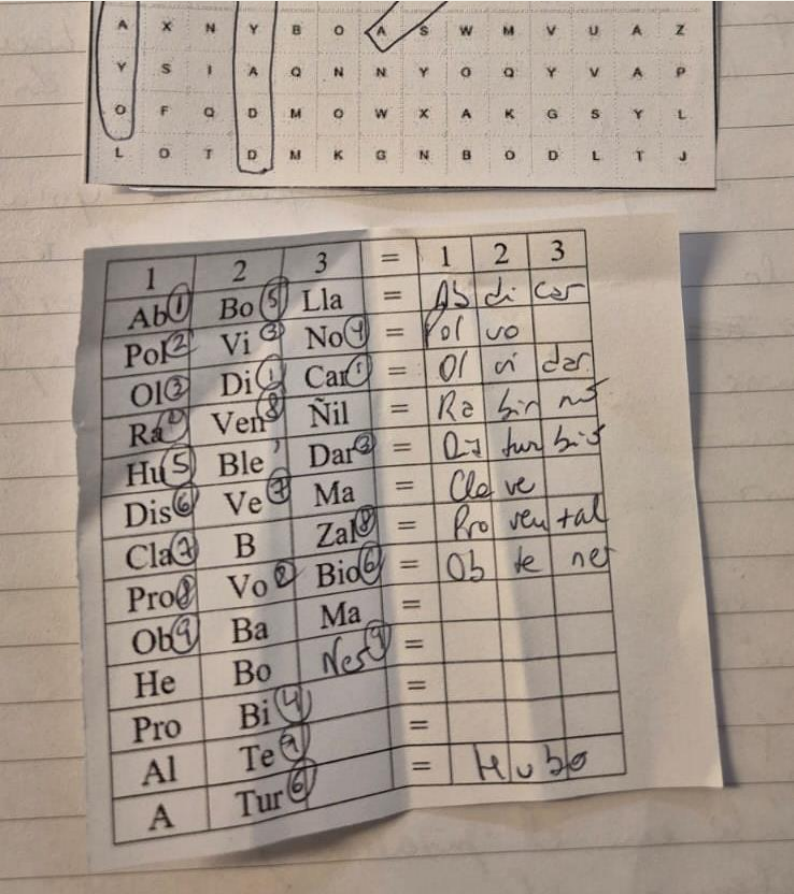 A X N Y B O A S W M V U A Z
Y S I A Q N N Y O Q Y V A P
O F Q D M O W X A K G S Y L
L O T D M K G N B O D L T J
1 2 3 = 1 2 3
Ab 1 Bo 5 Lla = Ab di car
Pol 2 Vi 3 No 4 = Pol vo
Ol 3 Di 1 Car 1 = Ol vi dar
Ra Ven 8 Ñil = Ra bin no
Hu 5 Ble Dar 3 = Dis tur bio
Dis 6 Ve 7 Ma = Cla ve
Cla 7 B Zal 8 = Pro ven tal
Pro 8 Vo 2 Bio 6 = Ob te ner
Ob 9 Ba Ma =
He Bo Ner 9 =
Pro Bi 4 =
Al Te 9 =
A Tur 6 = Hubo